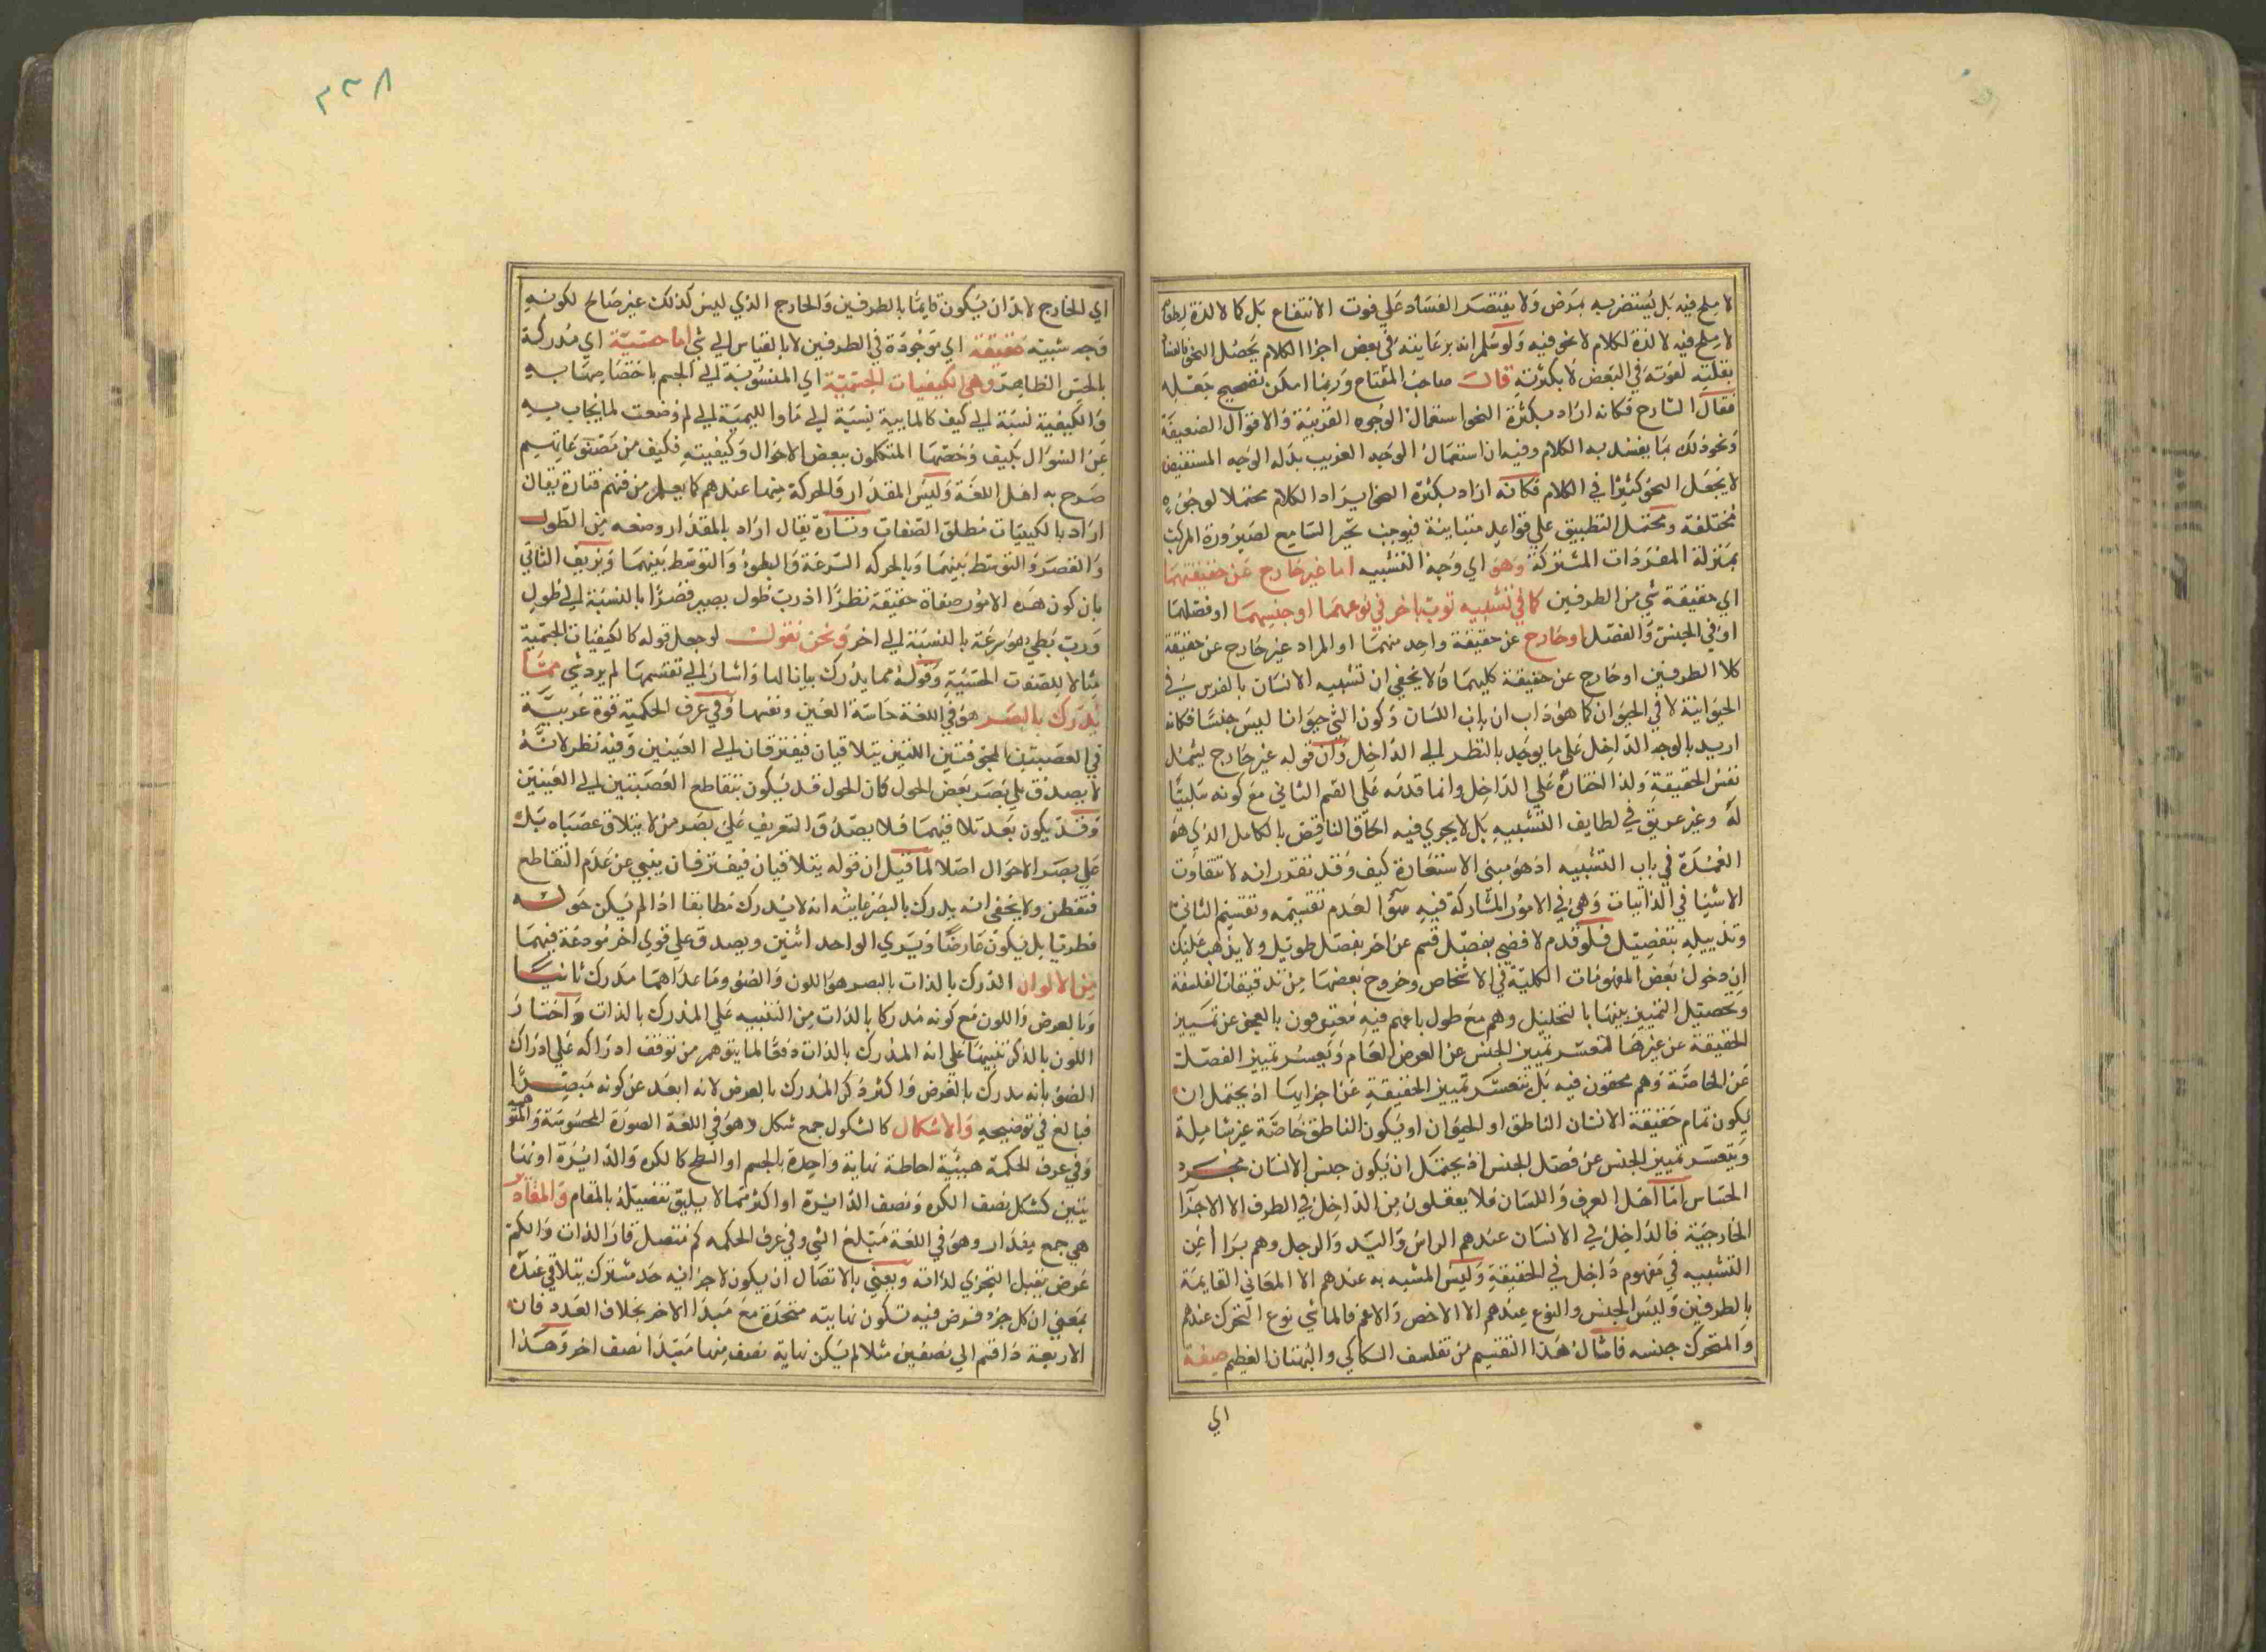 لا ملح فيه بل يستضر به مرض ولا يقتصر الفساد علي فوت الانتفاع بل كما لا لذة لطعام
لا ملح فيه لا لذة لكلام لا نحو فيه ولو سلم انه برعايته في بعض اجزا الكلام يحصل النحو
بقلته لفوته في البعض لا بكثرته قال صاحب المفتاح وربما امكن تصحيح جعله
فقال الشارح فكانه اراد بكثرة النحو استعمال الوجوه الغريبة والاقوال الضعيفة
ونحو ذلك مما يفسد به الكلام وفيه ان استعمال الوجه الغريب بدله الوجه المستفيض
لا يجعل النحو كثيرا في الكلام فكانه اراد بكثرة النحو ايراد الكلام محتملا لوجوه
مختلفة ومحتمل التطبيق علي قواعد متباينة فيوجب تحير السامع لصيرورة المركب
بمنزلة المفردات المشتركة وهو اي وجه التشبيه اما غير خارج عن حقيقتهما
اي حقيقة شي من الطرفين كما في تشبيه ثوب باخر في نوعهما او جنسهما او فصلهما
او في الجنس والفصل او خارج عن حقيقة واحد منهما او المراد غير خارج عن حقيقة
كلا الطرفين او خارج عن حقيقة كليهما ولا يخفي ان تشبيه الانسان بالفرس في
الحيوانية لا في الحيوان كما هو داب ان باب اللسان وكون الشي حيوانا ليس جنسا فكانه
اريد بالوجه الداخل علي ما يوجد بالنظر الي الداخل وان قوله غير خارج يشمل
نفس الحقيقة ولذا اختاره علي الداخل وانما قدمه علي القسم الثاني مع كونه سلبيا
له وغير عريق في لطايف التشبيه بل لا يجري فيه الحاق الناقص بالكامل الذي هو
العمدة في باب التشبيه اذ هو مبنى الاستعارة كيف وقد تقرر انه لا تتفاوت
الاشيا في الذاتيات وهي في الامور المشاركة فيه سوا لعدم تقسيمه وتقسيم الثاني
وتذييله بتفصيل فلو قدم لافضي بفصل قسم عن اخر بفصل طويل ولا يذهب عليك
ان دخول بعض المفهومات الكلية في الاشخاص وخروج بعضها من تدقيقات الفلسفة
وتحصيل التمييز بينها بالتحليل وهم مع طول باعهم فيه معترفون بالعجز عن تمييز
الحقيقة عن غيرها لتعسر تمييز الجنس عن العرض العام وتعسر تمييز الفصل
عن الخاصة وهم محقون فيه بل يتعسر تمييز الحقيقة عن اجزايها اذ يحتمل ان
يكون تمام حقيقة الانسان الناطق او الحيوان او يكون الناطق خاصة غير شاملة
ويتعسر تمييز الجنس عن فصل الجنس اذ يحتمل ان يكون جنس الانسان مجرد
الحساس اما اهل العرف واللسان فلا يعقلون من الداخل في الطرف الا الاجزا
الخارجية فالداخل في الانسان عندهم الراس واليد والرجل وهم برا اعن
التشبيه في مفهوم داخل في الحقيقة وليس المشبه به عندهم الا المعاني القايمة
بالطرفين وليس الجنس والنوع عندهم الا الاخص والاعم فالماشي نوع المتحرك عندهم
والمتحرك جنسه فامثال هذا التقسيم من تفلسف السكاكي والبهتان العظيم صفة
اي
٣٣٨
اي الخارج لابد ان يكون قايما بالطرفين والخارج الذي ليس كذلك غير صالح لكونه
وجه شبيه حقيقة اي موجودة في الطرفين لا بالقياس الي شي اما حسية اي مدركة
بالحس الظاهر وهي الكيفيات الجسمية اي المنسوبة الي الجسم باختصاصها به
والكيفية نسبة الي كيف كالمايية نسبة الي ما والليمية الي لم وضعت لما يجاب به
عن السوال بكيف وخصها المتكلمون ببعض الاحوال وكيفيته فكيف من
صرح به اهل اللغة وليس المقدار والحركة منها عندهم كما يعلم من فنهم فتارة يقال
اراد بالكيفيات مطلق الصفات وتارة يقال اراد بالمقدار وصفه من الطول
والقصر والتوسط بينهما وبالحركه السرعة والبطوء والتوسط بينهما ويزيف الثاني
بان كون هذه الامور صفاة حقيقة نظرا اذ رب طول يصير قصرا بالنسبة الي طول
ورب بطي هو سرعة بالنسبة الي اخر ونحن نقول لو جعل قوله كالكيفيات الجسمية
مثالا للصفت الحسية وقوله مما يدرك بيانا لها واشار الي تقسيمها لم يرد شي مما
يدرك بالبصر هو في اللغة حاسة العين ونفيها وفي عرف الحكمية قوة غريبة
في العصبتين المجوفتين اللتين يتلاقيان فيفترقان الي العينين وفيه نظر لانه
لا يصدق علي بصر بعض الحول كان الحول قد يكون بتقاطع العصبتين الي العينين
وقد يكون بعد تلاقيهما فلا يصدق التعريف علي بصر من لا يتلاق عصباه بل
علي بصر الاحوال اصلا لما قيل ان قوله يتلاقيان فيفترقان ينبي عن عدم التقاطع
فتفطن ولا يخفى انه يدرك بالبصر غايته انه لا يدرك مطابقا اذا لم يكن حوله
فطريا بل يكون عارضا ويري الواحد اثنين ويصدق علي قوي اخر مودعة فيهما
من الالوان الدرك بالذات بالبصر هو اللون والضو وما عداهما مدرك ثانيا
وبالعرض واللون مع كونه مدركا بالذات من التنبيه علي المدرك بالذات واختار
اللون بالذكر تنبيها علي انه المدرك بالذات دفعا لما يتوهم من توقف ادراكه علي ادراك
الضو بانه مدرك بالعرض واكثر ذكر المدرك بالعرض لانه ابعد عن كونه مبصرا
فبالغ في توضيحه والاشكال كالشكول جمع شكل وهو في اللغة الصورة المحسوسة والمتوهمة
وفي عرف الحكمة هيئة احاطة نهاية واحدة بالجسم او السطح كالكره والدايرة او نهايتين
كشكل نصف الكره ونصف الدايرة او اكثر مما لا يليق تفصيله بالمقام والمقادير
هي جمع مقدار وهو في اللغة مبلغ الشي وفي عرف الحكمه كم متصل قار الذات والكم
عرض يقبل التجزي لذاته ويعني بالاتصال ان يكون لاجزائه حد مشترك يتلاقي عنده
بمعني ان كل جزء فرض فيه تكون نهايته متحدة مع مبدا الاخر بخلاف العدد فان
الاربعة ذا قسم الي نصفين مثلا لم يكن نهاية نصف منها مبتدا نصف اخر وهذا